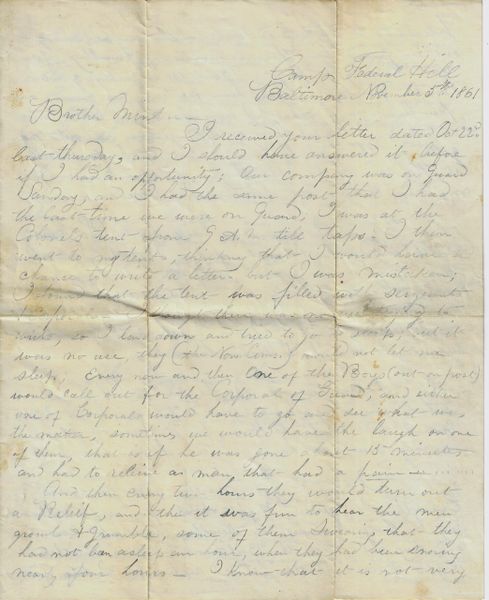 Camp Federal Hill
Baltimore November 5th 1861
Brother
I received your letter dated Oct 22nd
last thursday, and I should have answered it before
if I had an opportunity; Our company was on Guard
Sunday, and I had the same post that I had
the last time we were on Guard, I was at the
Colonels tent from 9 A.M. till taps. I then
went to my tent, thinking that I would have a
chance to write a letter, but I was mistaken;
I found that the tent was filled with
so I lay down and tried to go to sleep, but it
was no use, they (the Non Coms.) would not let me
sleep; Every now and then one of the Boys (out on post)
would call out for the Corporal of Guard, and either
one of Corporals would have to go and see what was
the matter, sometimes we would have the laugh on one
of them, that is if he was gone about 15 minutes
and had to relieve a man, that had a pain
And then every two hours they would turn out
a Relief, and the it was fun to hear the men
growl & grumble, some of them swearing that they
had not ben asleep an hour, when they had been snoring
nearly four hours — I know that it is not very